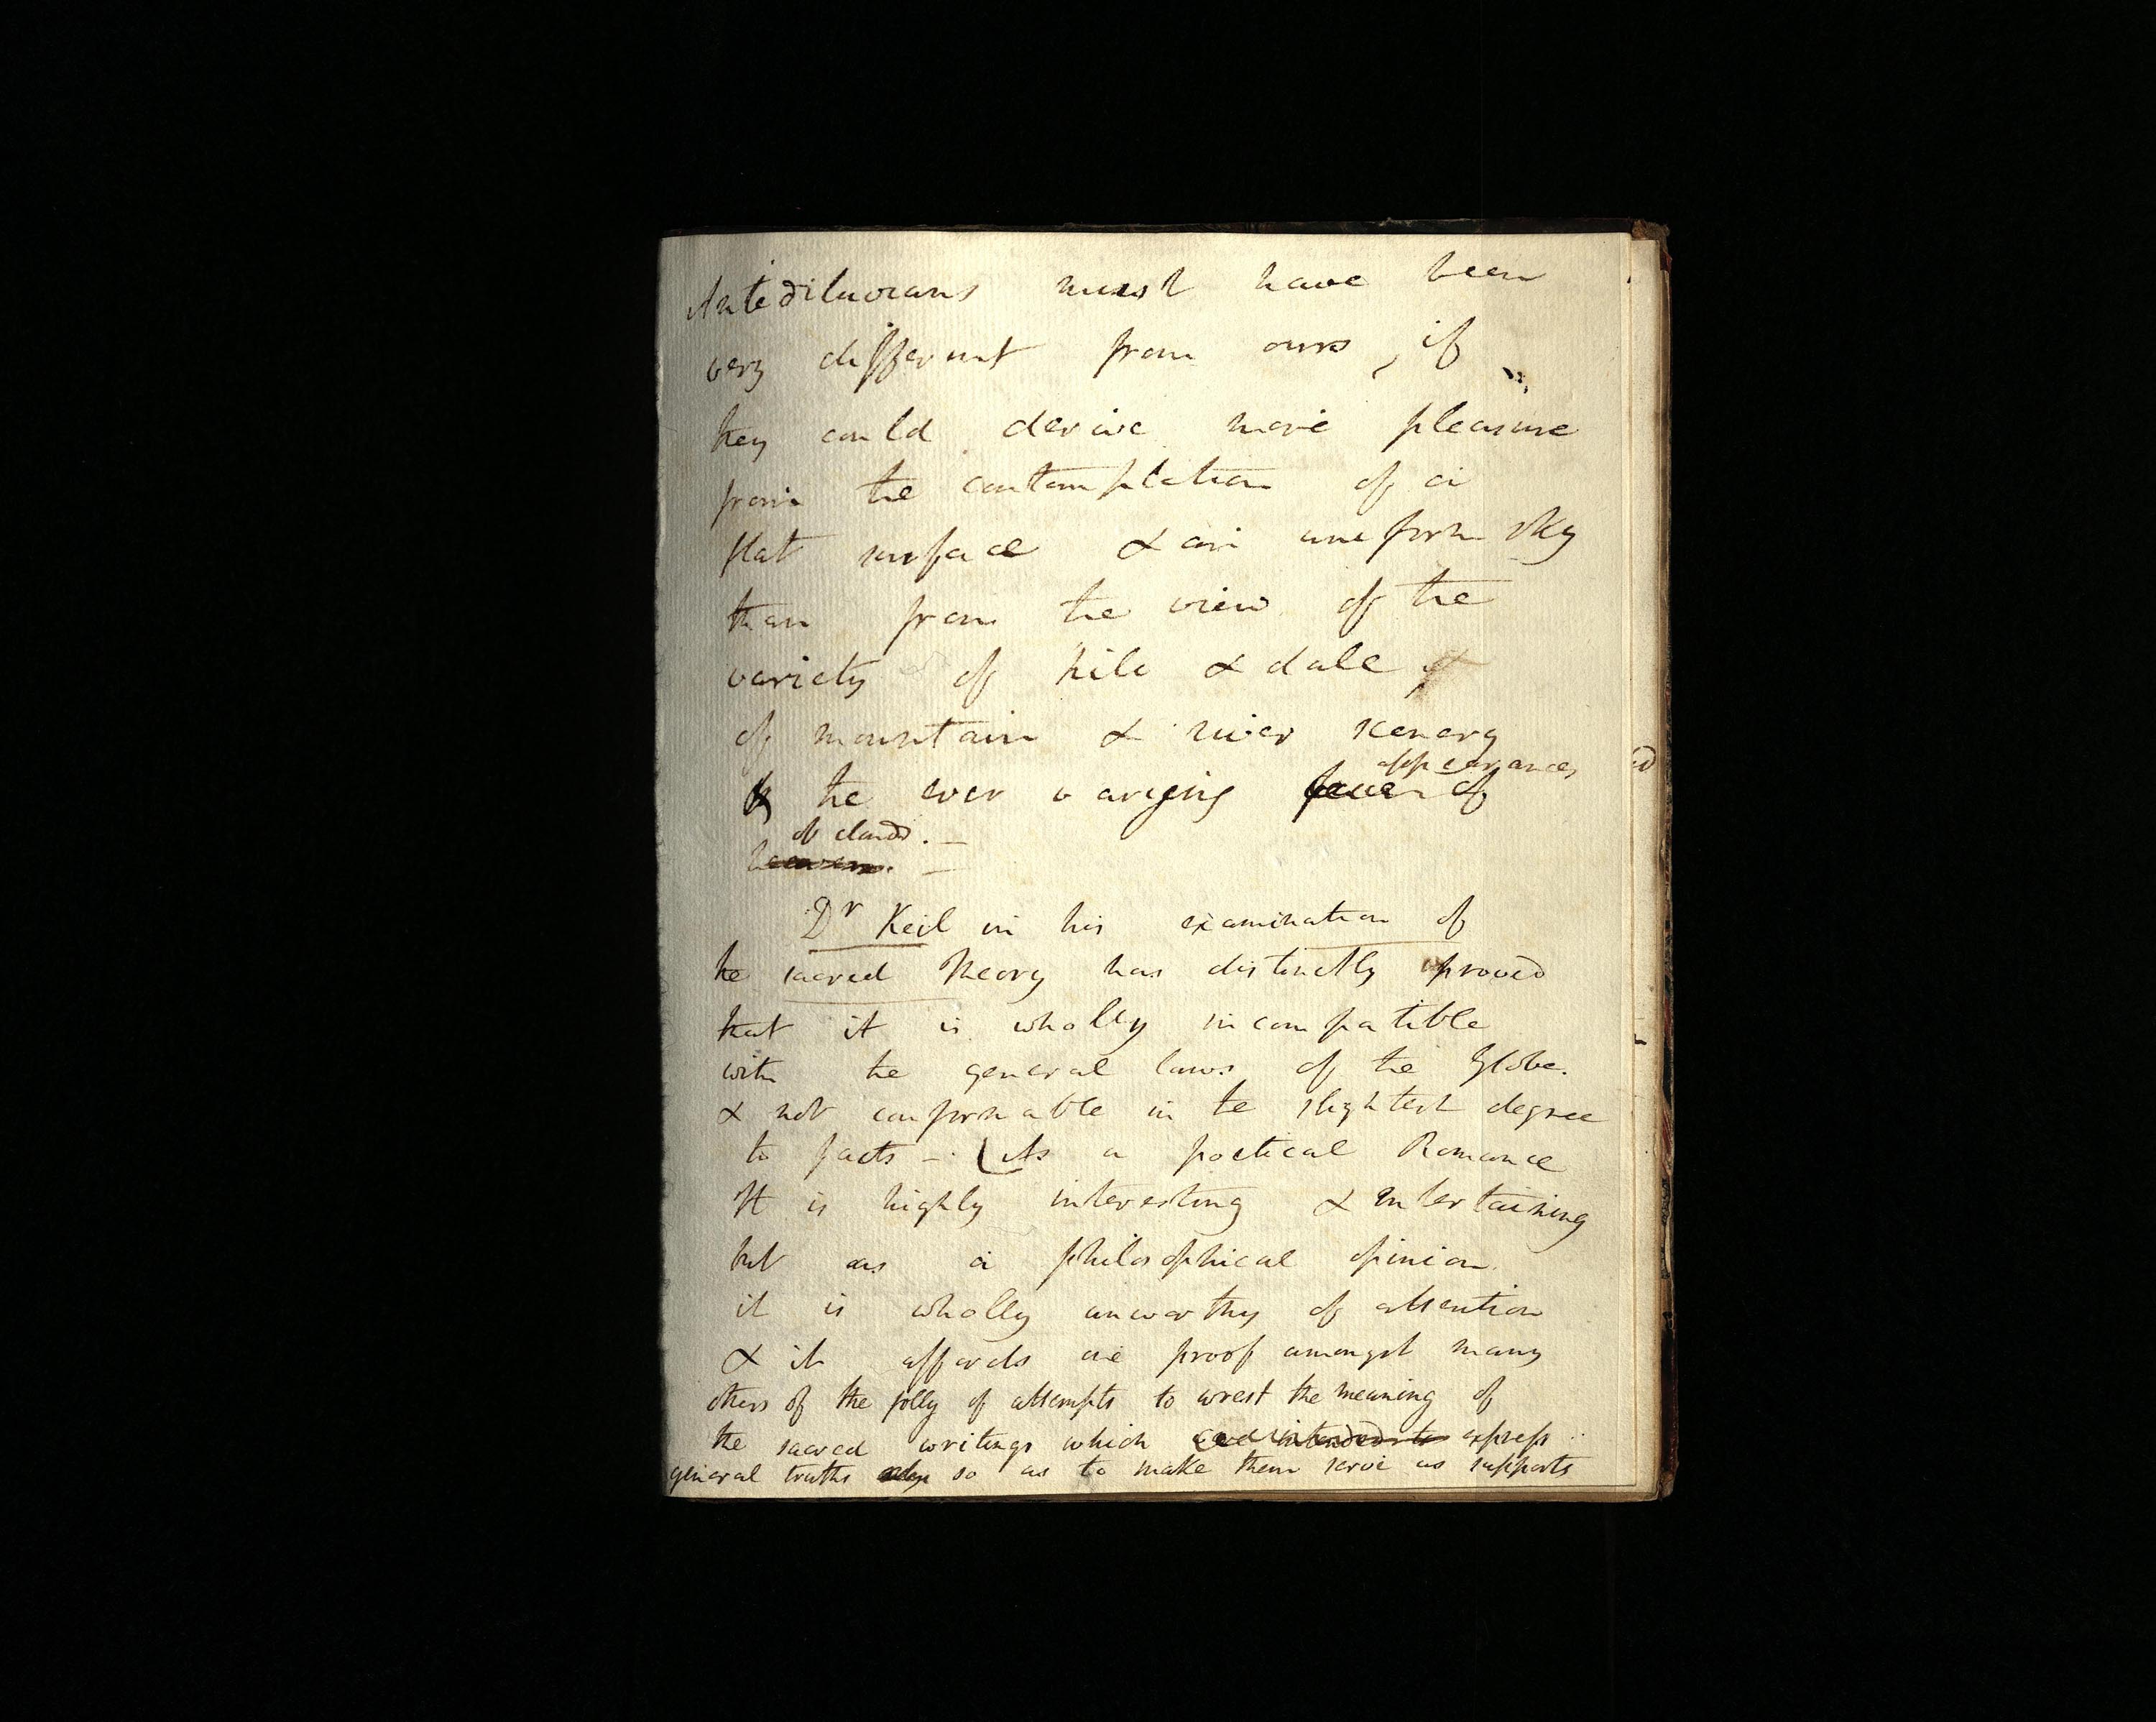 Antediluvians must have been
very different from ours, if
they could derive more pleasure
from the contemplation of a
flat surface & an uniform sky
than from the view of the
variety of hill & dale,
of mountain & river scenery
& the ever varying of
appearances
of clouds. —
heavens. —
Dr Keil in his examination of
the sacred Theory has distinctly proved
that it is wholly incompatible
with the general laws of the Globe.
& not conformable in te slightest degree
to facts —. (As a poetical Romance
It is highly interesting & entertaining
but as a philosophical opinion
it is wholly unworthy of attention
& it affords one proof amongst many
others of the folly of attempts to wrest the meaning of
the sacred writings which are intended to express
general truths only so as to make them serve as supports